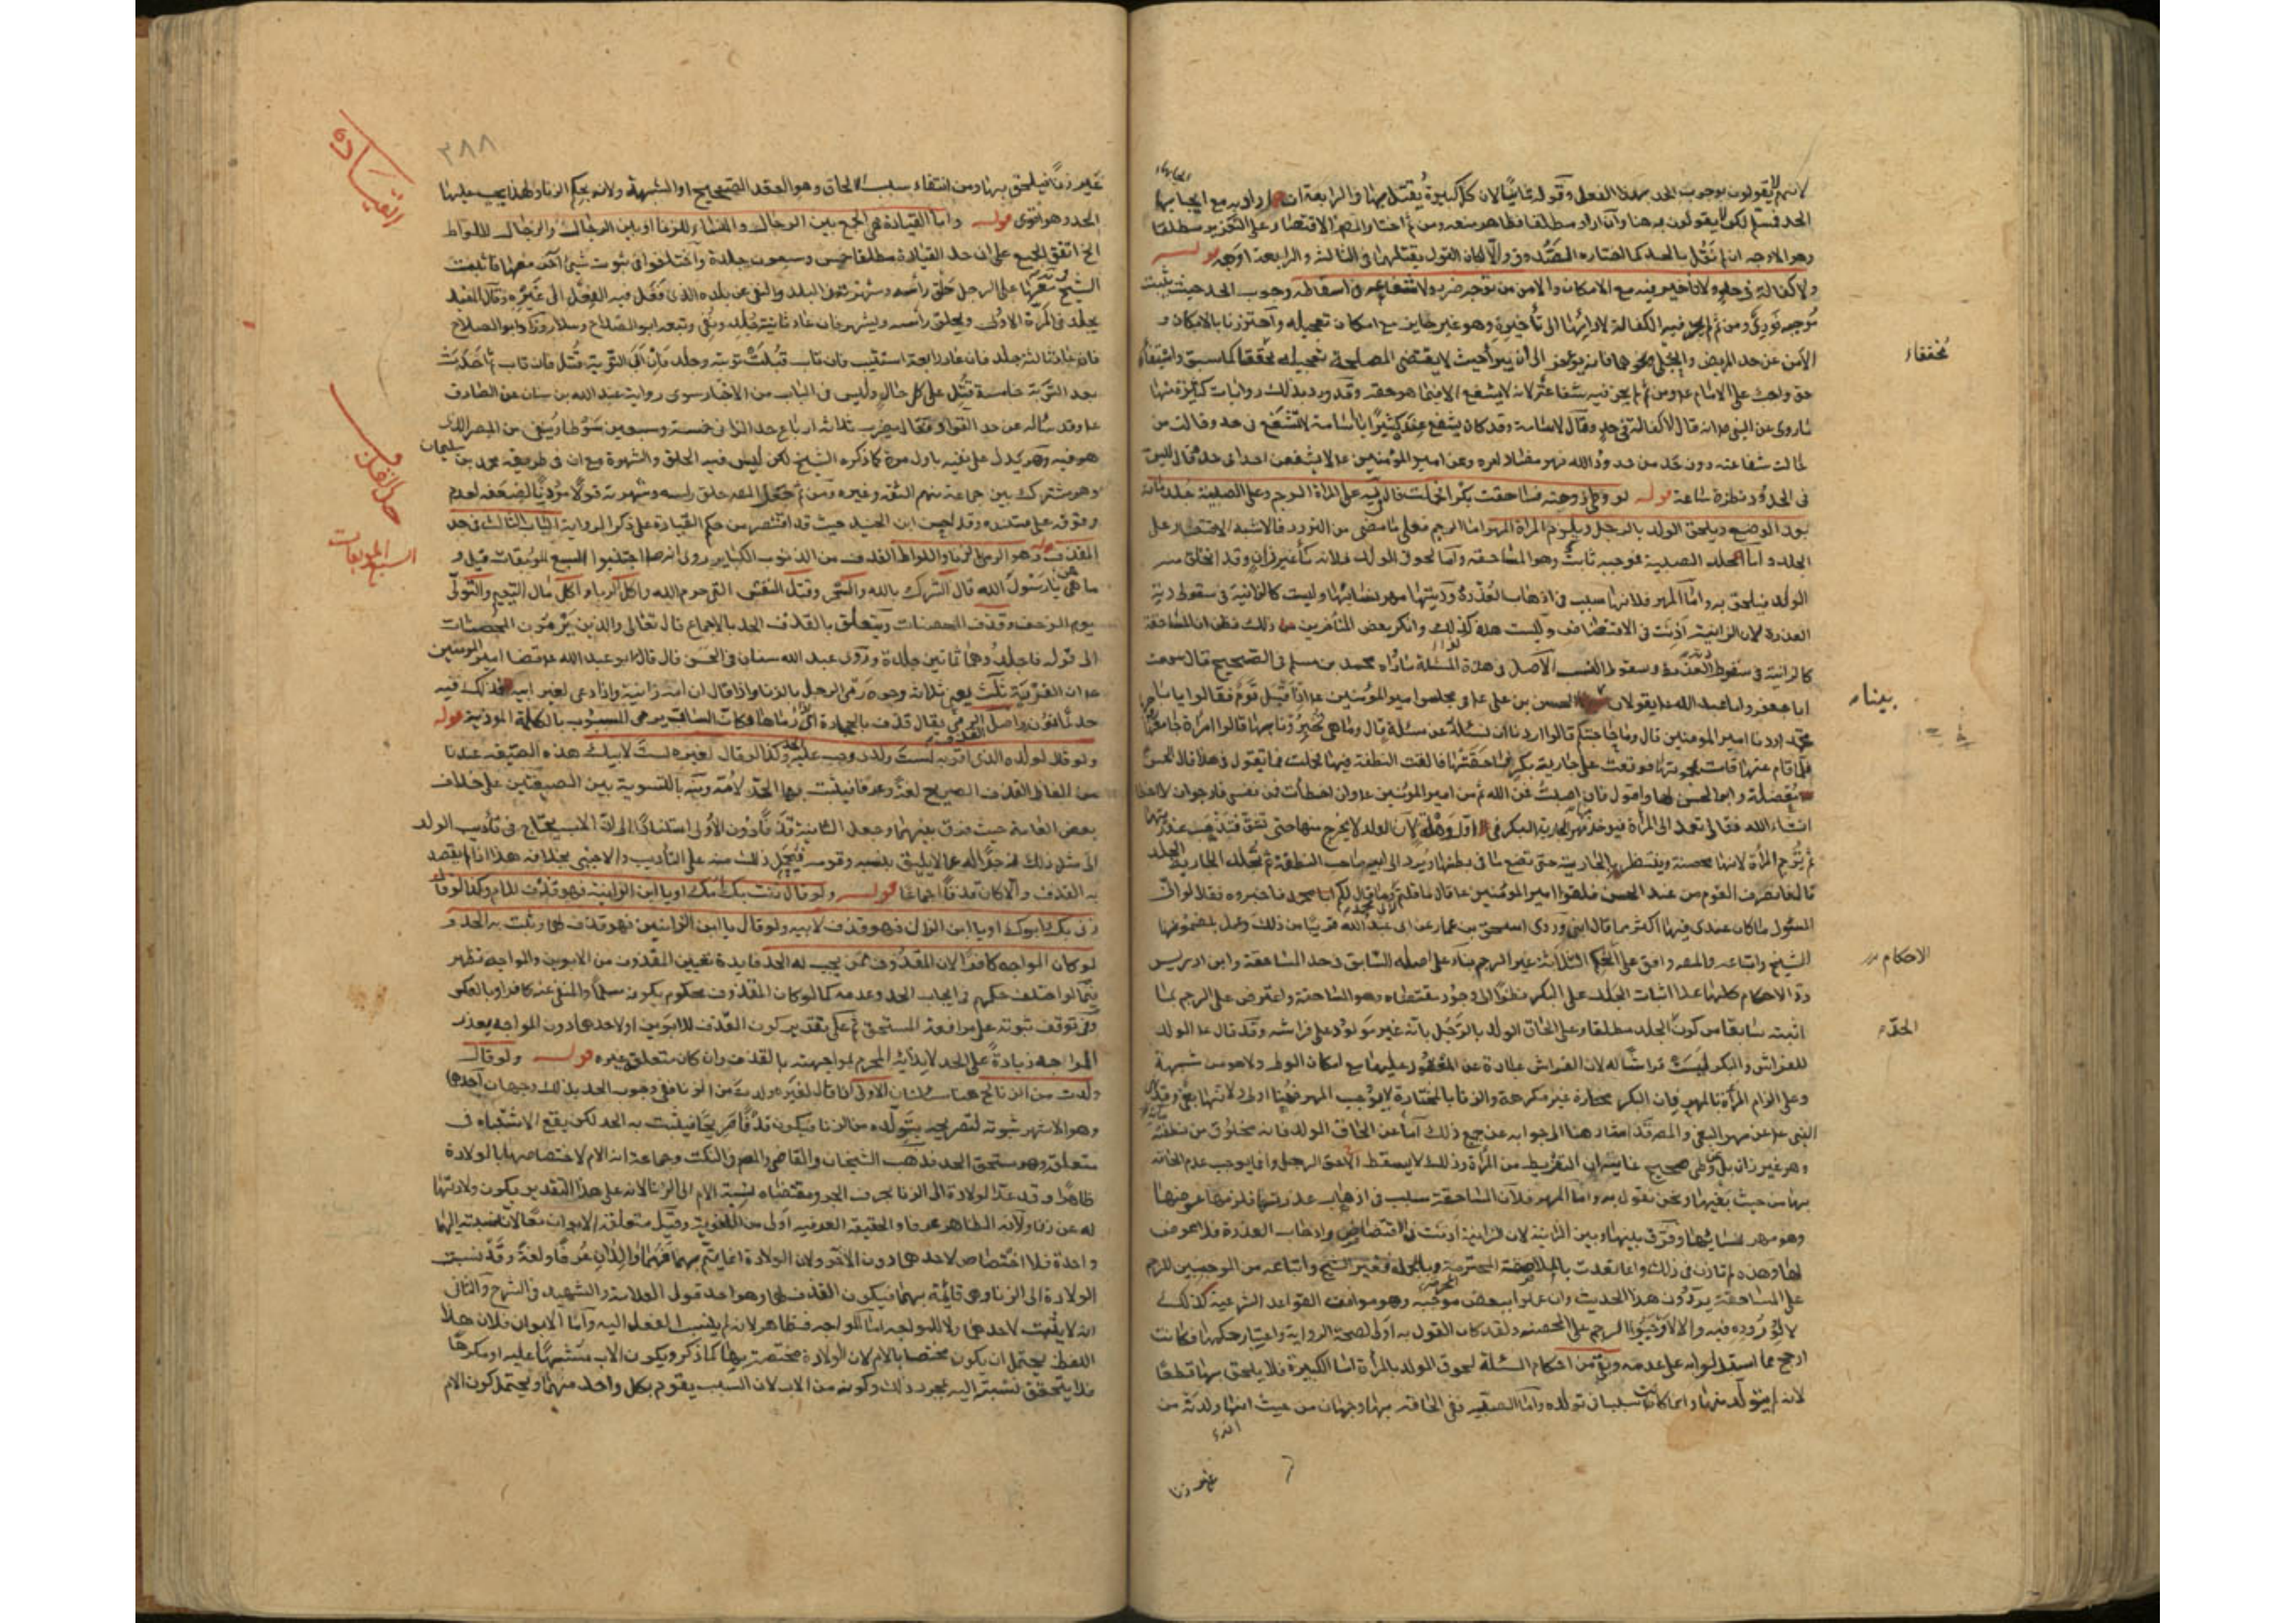 لانهم لا يقولون بوجوب الحد بهذا الفعل وقوله ثانيا لان كل كبيرة يقتل بها في الرابعة ان اراد به مع ايجابها
الحد فمسلم لكن لا يقولون به هنا وان اراد مطلقا فظاهر منعه ومن ثم اختار المصر الاقتصار على التعزير مطلقا
وهو الاوجه ان لم نقل بالحد كما اختاره الصدوق والا كان القول بقتلهما في الثالثة او الرابعة اوجه قوله
ولا كفالة في حد ولا تاخير فيه مع الامكان والامن من توجه ضرر ولا شفاعة في اسقاطه وجوب الحد حيث يثبت
موجبه فوري ومن ثم لم يجز فيه الكفالة لادائها الى تأخيره وهو غير جايز مع امكان تعجيله واحترز بالامكان و
الامن عن حد المريض والحبلى ونحوهما فانه يؤخر الى ان يبرأ حيث لا يقتضي المصلحة تعجيله مخففا كما سبق واستيفاء
حق واجب على الامام عم ومن ثم لم يجز فيه شفاعة لانه لا يشفع الا فيما هو حقه وقد ورد بذلك روايات كثيرة منها
ما روي عن النبي ص انه قال لا كفالة في حد وقال لاسامة وقد كان يشفع عنده كثيرا يا اسامة لا تشفع في حد
في الحدود نظرة ساعة قوله لو وطئ زوجته فساحقت بكرا فحملت قال في يه على المراة الرجم وعلى الصبية جلد مائة
بعد الوضع ويلحق الولد بالرجل ويلزم المراة المهر اما الرجم فعلى ما مضى من التردد فالاشبه الاقتصار على
الجلد واما جلد الصبية فموجبه ثابت وهو المساحقة واما لحوق الولد فلانه ماء غير زان وقد انخلق منه
الولد فيلحق به واما المهر فلانها سبب في اذهاب العذرة وديتها مهر نسائها وليست كالزانية في سقوط دية
العذرة لان الزانية اذنت في الافتضاض وليست هذه كذلك وانكر بعض المتأخرين ذلك فظن ان المساحقة
كالزانية في سقوط دية العذرة وسقوط النسب الاصل في هذه المسئلة ما رواه محمد بن مسلم في الصحيح قال سمعت
ابا جعفر وابا عبد الله عم يقولان بينا الحسن بن علي عم في مجلس امير المؤمنين عم اذ اقبل قوم فقالوا يا با
محمد اردنا امير المؤمنين قال وما حاجتكم قالوا اردنا ان نسئله عن مسئلة قال وما هي تخبرونا بها قالوا امراة جامعها
فلما قام عنها قامت بحموتها فوقعت على جارية بكر فساحقتها فالقت النطفة فيها فحملت فما تقول في هذا فقال الحسن
معضلة وابو الحسن لها واقول فان اصبت فمن الله ثم من امير المؤمنين عم وان اخطأت فمن نفسي فارجو ان لا اخطئ
انشاء الله فقال تعمد الى المراة فيؤخذ منها مهر الجارية البكر في اول وهلة لان الولد لا يخرج منها حتى تشق فتذهب عذرتها
ثم ترجم المراة لانها محصنة وينتظر بالجارية حتى تضع ما في بطنها ويرد الى ابيه صاحب النطفة ثم تجلد الجارية الحد
قال فانصرف القوم من عند الحسن فلقوا امير المؤمنين عم فقال ما قلتم لابي محمد وما قال لكم فاخبروه فقال لو انني
المسئول ما كان عندي فيها اكثر مما قال ابني وروى اسحق بن عمار عن ابي عبد الله قريبا من ذلك وعمل بمضمونها
الشيخ واتباعه والمصر وافق على الاحكام الثلاثة غير الرجم بناء على اصله السابق في حد المساحقة وابن ادريس
رد الاحكام كلها عدا اثبات الجلد على البكر نظرا الى وجود مقتضاه وهو المساحقة واعترض على الرجم بما
اثبته سابقا من كون الجلد مطلقا وعلى الحاق الولد بالرجل بانه غير مولود على فراشه وقد قال عم الولد
للفراش والبكر ليست فراشا له لان الفراش عبارة عن المعقود عليها مع امكان الوطء ولا هو من شبهة
وعلى الزام المراة بالمهر فان البكر مختارة غير مكرهة والزنا بالمختارة لا يوجب المهر فهنا اولى لانها بغي وقد نهى
النبي عم عن مهر البغي والمصر قد اشار هنا الى جوابه عن جميع ذلك اما عن الحاق الولد فانه مخلوق من نطفته
وهو غير زان
بها من حيث بغيها ونحن نقول به واما المهر فلان المساحقة سبب في اذهاب عذرتها فلزمها عوضها
وهو مهر نسائها وفرق بينها وبين الزانية لان الزانية اذنت في الافتضاض واذهاب العذرة فلا عوض
لها وهذه لم تاذن في ذلك وانما تعدت بالملاصقة المحرمة وبالجملة فغير الشيخ واتباعه من الموجبين للرجم
على المساحقة يردون هذا الحديث وان عملوا ببعض موجبه وهو موافق القواعد الشرعية كذلك
لا لوروده فيه والا لاوجبوا الرجم على المحصنة ولقد كان القول به اولى لصحة الرواية واعتبار حكمها فكانت
ارجح مما استدلوا به على عدمه وبقي من احكام المسئلة لحوق الولد بالمراة اما الكبيرة فلا يلحق بها قطعا
لانه لم يتولد منها وانما كانت سببا في تولده واما الصغيرة ففي الحاقه بها وجهان من حيث انها ولدته من
غير زنا
مخففا
بينا
الاحكام
الحد
٣٨٨
غير زنا فيلحق بها ومن انتفاء سبب الالحاق وهو العقد الصحيح او الشبهة ولانه بحكم الزنا ولهذا يجب عليها
الحد وهو اقوى قوله واما القيادة فهي الجمع بين الرجال والنساء للزنا او بين الرجال والرجال للواط
الخ اتفق الجميع على ان حد القيادة مطلقا خمس وسبعون جلدة واختلفوا في ثبوت شيء آخر معها فاثبت
الشيخ معها على الرجل حلق راسه وشهرته في البلد والنفي عن بلده الذي فعل فيه الفعل الى غيره وقال المفيد
يجلد في المرة الاولى ويحلق رأسه ويشهر فان عاد ثانية جلد ونفي وتبعه ابو الصلاح وسلار وزاد ابو الصلاح
فان عاد ثالثة جلد فان عاد رابعة استتيب فان تاب قبلت توبته وجلد فان ابى التوبة قتل فان تاب ثم احدث
بعد التوبة خامسة قتل على كل حال وليس في الباب من الاخبار سوى رواية عبد الله بن سنان عن الصادق
عم وقد سأله عن حد القواد فقال يضرب ثلاثة ارباع حد الزاني خمسة وسبعين سوطا وينفى من المصر الذي
هو فيه وهو يدل على نفيه باول مرة كما ذكره الشيخ لكن ليس فيه الحلق والشهرة مع ان في طريقه محمد بن سليمان
وهو مشترك بين جماعة منهم الثقة وغيره ومن ثم جعل المصر حلق راسه وشهرته قولا مؤذنا بضعفه لعدم
وقوفه على مستنده وقد احسن ابن الجنيد حيث قد اقتصر من حكم القيادة على ذكر الرواية الباب الثالث في حد
القذف وهو الرمي بالزنا او اللواط القذف من الذنوب الكباير روي انه ص اجتنبوا السبع الموبقات قيل و
ما هي يا رسول الله قال الشرك بالله والسحر وقتل النفس التي حرم الله واكل الربا واكل مال اليتيم والتولي
يوم الزحف وقذف المحصنات ويتعلق بالقذف الحد بالاجماع قال تعالى والذين يرمون المحصنات
الى قوله فاجلدوهم ثمانين جلدة وروى عبد الله سنان في الحسن قال قال ابو عبد الله عم قضا امير المؤمنين
عم ان الفرية ثلث يعني ثلاث وجوه رمي الرجل بالزنا واذا قال ان امه زانية واذا دعي لغير ابيه فذلك فيه
حد ثمانون واصل القذف الرمي يقال قذف بالحجارة اي رماها فكان الساب يرمي المسبوب بالكلمة المؤذية قوله
ولو قال لولده الذي اقر به لست ولدي وجب عليه الحد وكذا لو قال لغيره لست لابيك هذه الصيغة عندنا
من الفاظ القذف الصريح لغة وعرفا فيثبت بهما الحد لامه ونبه بالتسوية بين الصيغتين على خلاف
بعض العامة حيث فرق بينهما وجعل الثانية قذفا دون الاولى استنادا الى ان الاب يحتاج في تأديب الولد
الى مثل ذلك زجرا له عما لا يليق بنسبه وقومه فيحمل ذلك منه على التأديب والاجنبي بخلافه هذا اذا لم يقصد
به القذف والا كان قذفا اجماعا قوله ولو قال زنت بك امك او يا ابن الزانية فهو قذف للام وكذا لو قال
زنى بك ابوك او يا ابن الزاني فهو قذف لابيه ولو قال يا ابن الزانيين فهو قذف لهما وثبت به الحد و
لو كان المواجه كافرا لان المقذوف ممن يجب له الحد فايدة تعيين المقذوف من الابوين والمواجه تظهر
فيما لو اختلف حكمهم في ايجاب الحد وعدمه كما لو كان المقذوف محكوم بكونه مسلما والمنفي عنه كافرا وبالعكس
وفي توقف ثبوته على مرافعة المستحق ثم على تقدير كون القذف للابوين او لاحدهما دون المواجه يعزر
للمواجه زيادة على الحد لايذائه المحرم لمواجهته بالقذف وان كان متعلق غيره قوله ولو قال
ولدت من الزنا الخ هنا مسئلتان الاولى اذا قال لغيره ولدت من الزنا ففي وجوب الحد بذلك وجهان احدهما
وهو الاشهر ثبوته لتصريحه بتولده من الزنا فيكون قذفا صريحا فيثبت به الحد لكن يقع الاشتباه في
متعلقه وهو مستحق الحد فذهب الشيخان والقاضي والمصر في النكت وجماعة انه الام لاختصاصها بالولادة
ظاهرا وقد عدى الولادة الى الزنا بحرف الجر ومقتضاه نسبة الام الى الزنا لانه على هذا التقدير يكون ولادتها
له عن زنا ولانه الظاهر عرفا والحقيقة العرفية اولى من اللغوية وقيل متعلقه الابوان معا لان نسبته اليهما
واحدة فلا اختصاص لاحدهما دون الآخر ولان الولادة انما يتم بهما فهما والدان عرفا ولغة وقد نسبت
الولادة الى الزنا وهي قائمة بهما فيكون القذف لهما وهو احد قولي العلامة والشهيد في الشرح والثاني
انه لا يثبت لاحدهما ولا للمواجه اما المواجه فظاهر لانه لم ينسب الفعل اليه واما الابوان فلان هذا
اللفظ يحتمل ان يكون مختصا بالام لان الولادة مختصة بها كما ذكر ويكون الاب مشتبها عليه او مكرها
فلا يتحقق نسبته اليه بمجرد ذلك وكونه من الاب لان السبب يقوم بكل واحد منهما ويحتمل كون الام
القيادة
حد القذف
السبع الموبقات